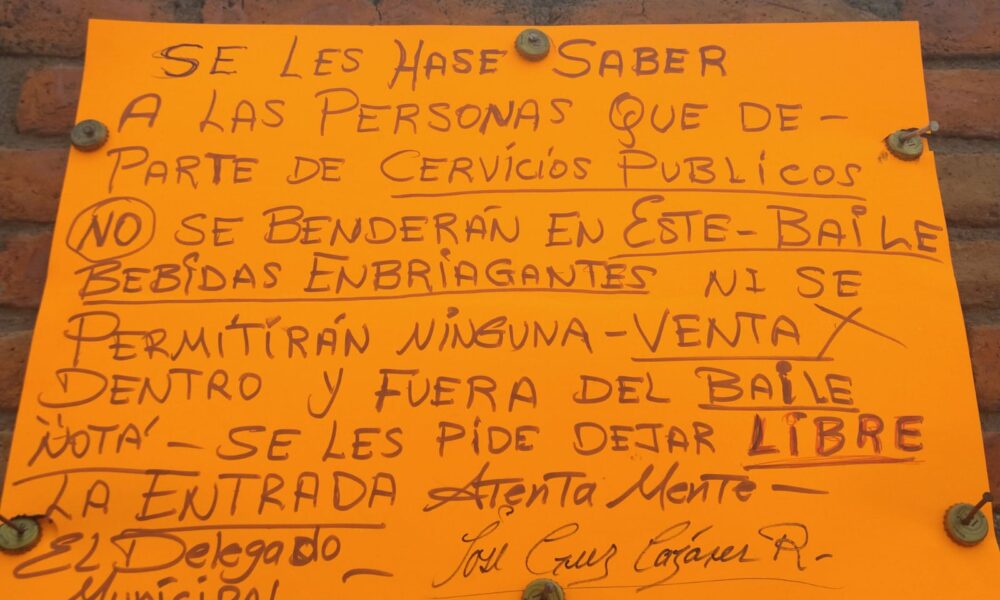 SE LES HASE SABER
A LAS PERSONAS QUE DE-
PARTE DE CERVICIOS PUBLICOS
NO SE BENDERÁN EN ESTE-BAILE
BEBIDAS ENBRIAGANTES NI SE
PERMITIRÁN NINGUNA-VENTA X
DENTRO Y FUERA DEL BAILE
NOTA - SE LES PIDE DEJAR LIBRE
LA ENTRADA Atenta Mente -
EL Delegado José Cruz Cazárez R.-
Municipal -